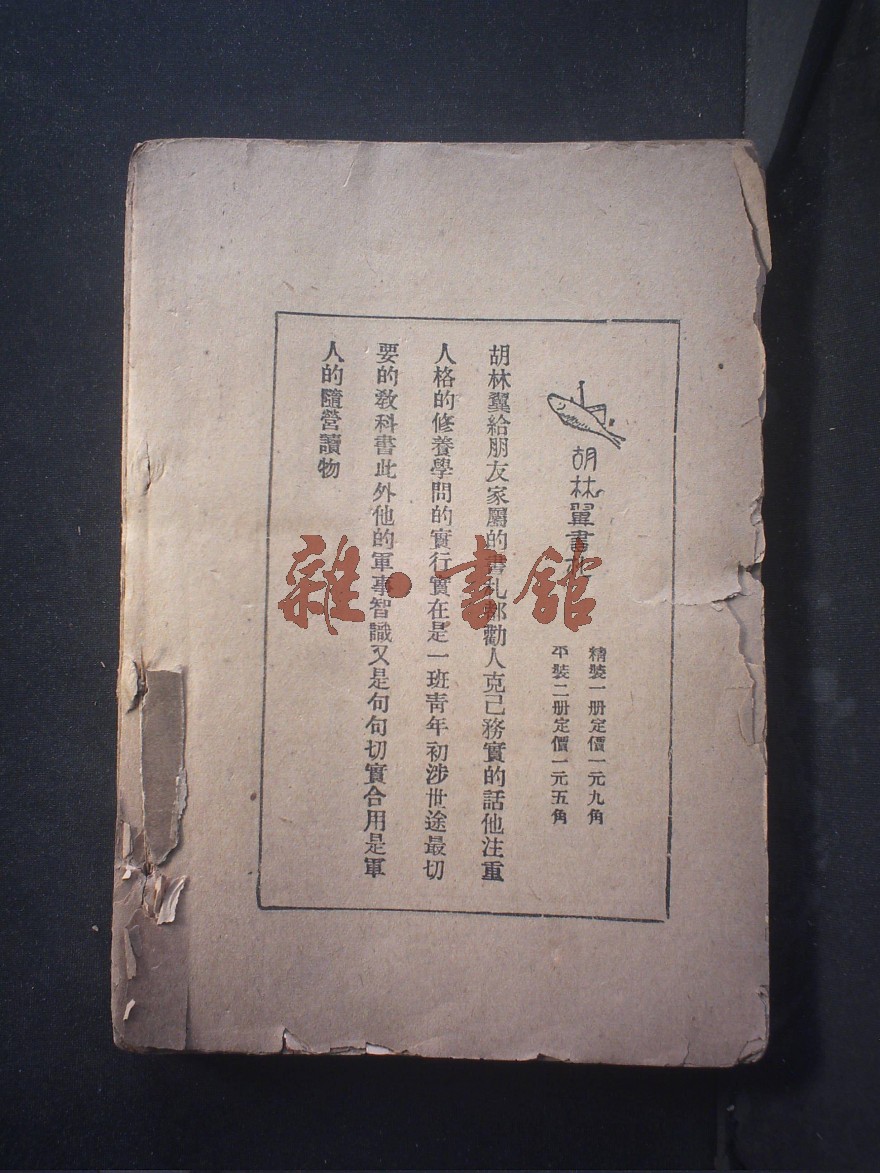 胡林翼書札
精裝一册定價一元九角
平裝二册定價一元五角
胡林翼給朋友家屬的書札都勸人克己務實的話他注重
人格的修養學問的實行實在是一班靑年初涉世途最切
要的敎科書此外他的軍事智識又是句句切實合用是軍
人的隨營讀物
雜·書館